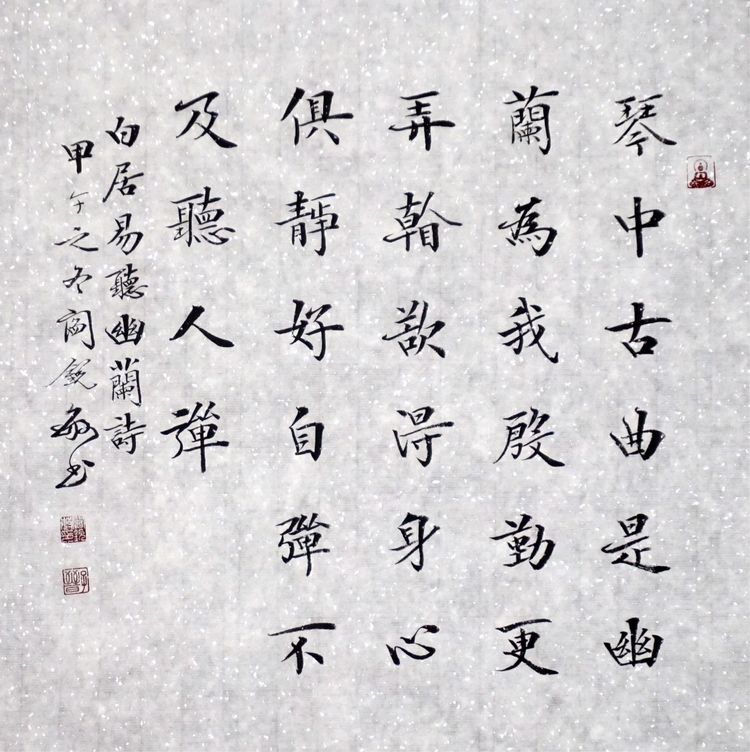 琴中古曲是幽
蘭為我殷勤更
弄看欲得身心
俱靜好自彈不
及聽人彈
白居易聽幽蘭詩
甲午之冬閻銳敏书